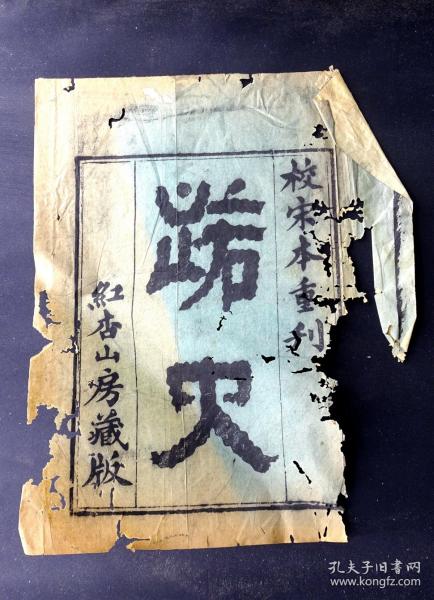 校宋本重刊
路史
紅杏山房藏版
孔夫子旧书网
www.kongfz.com